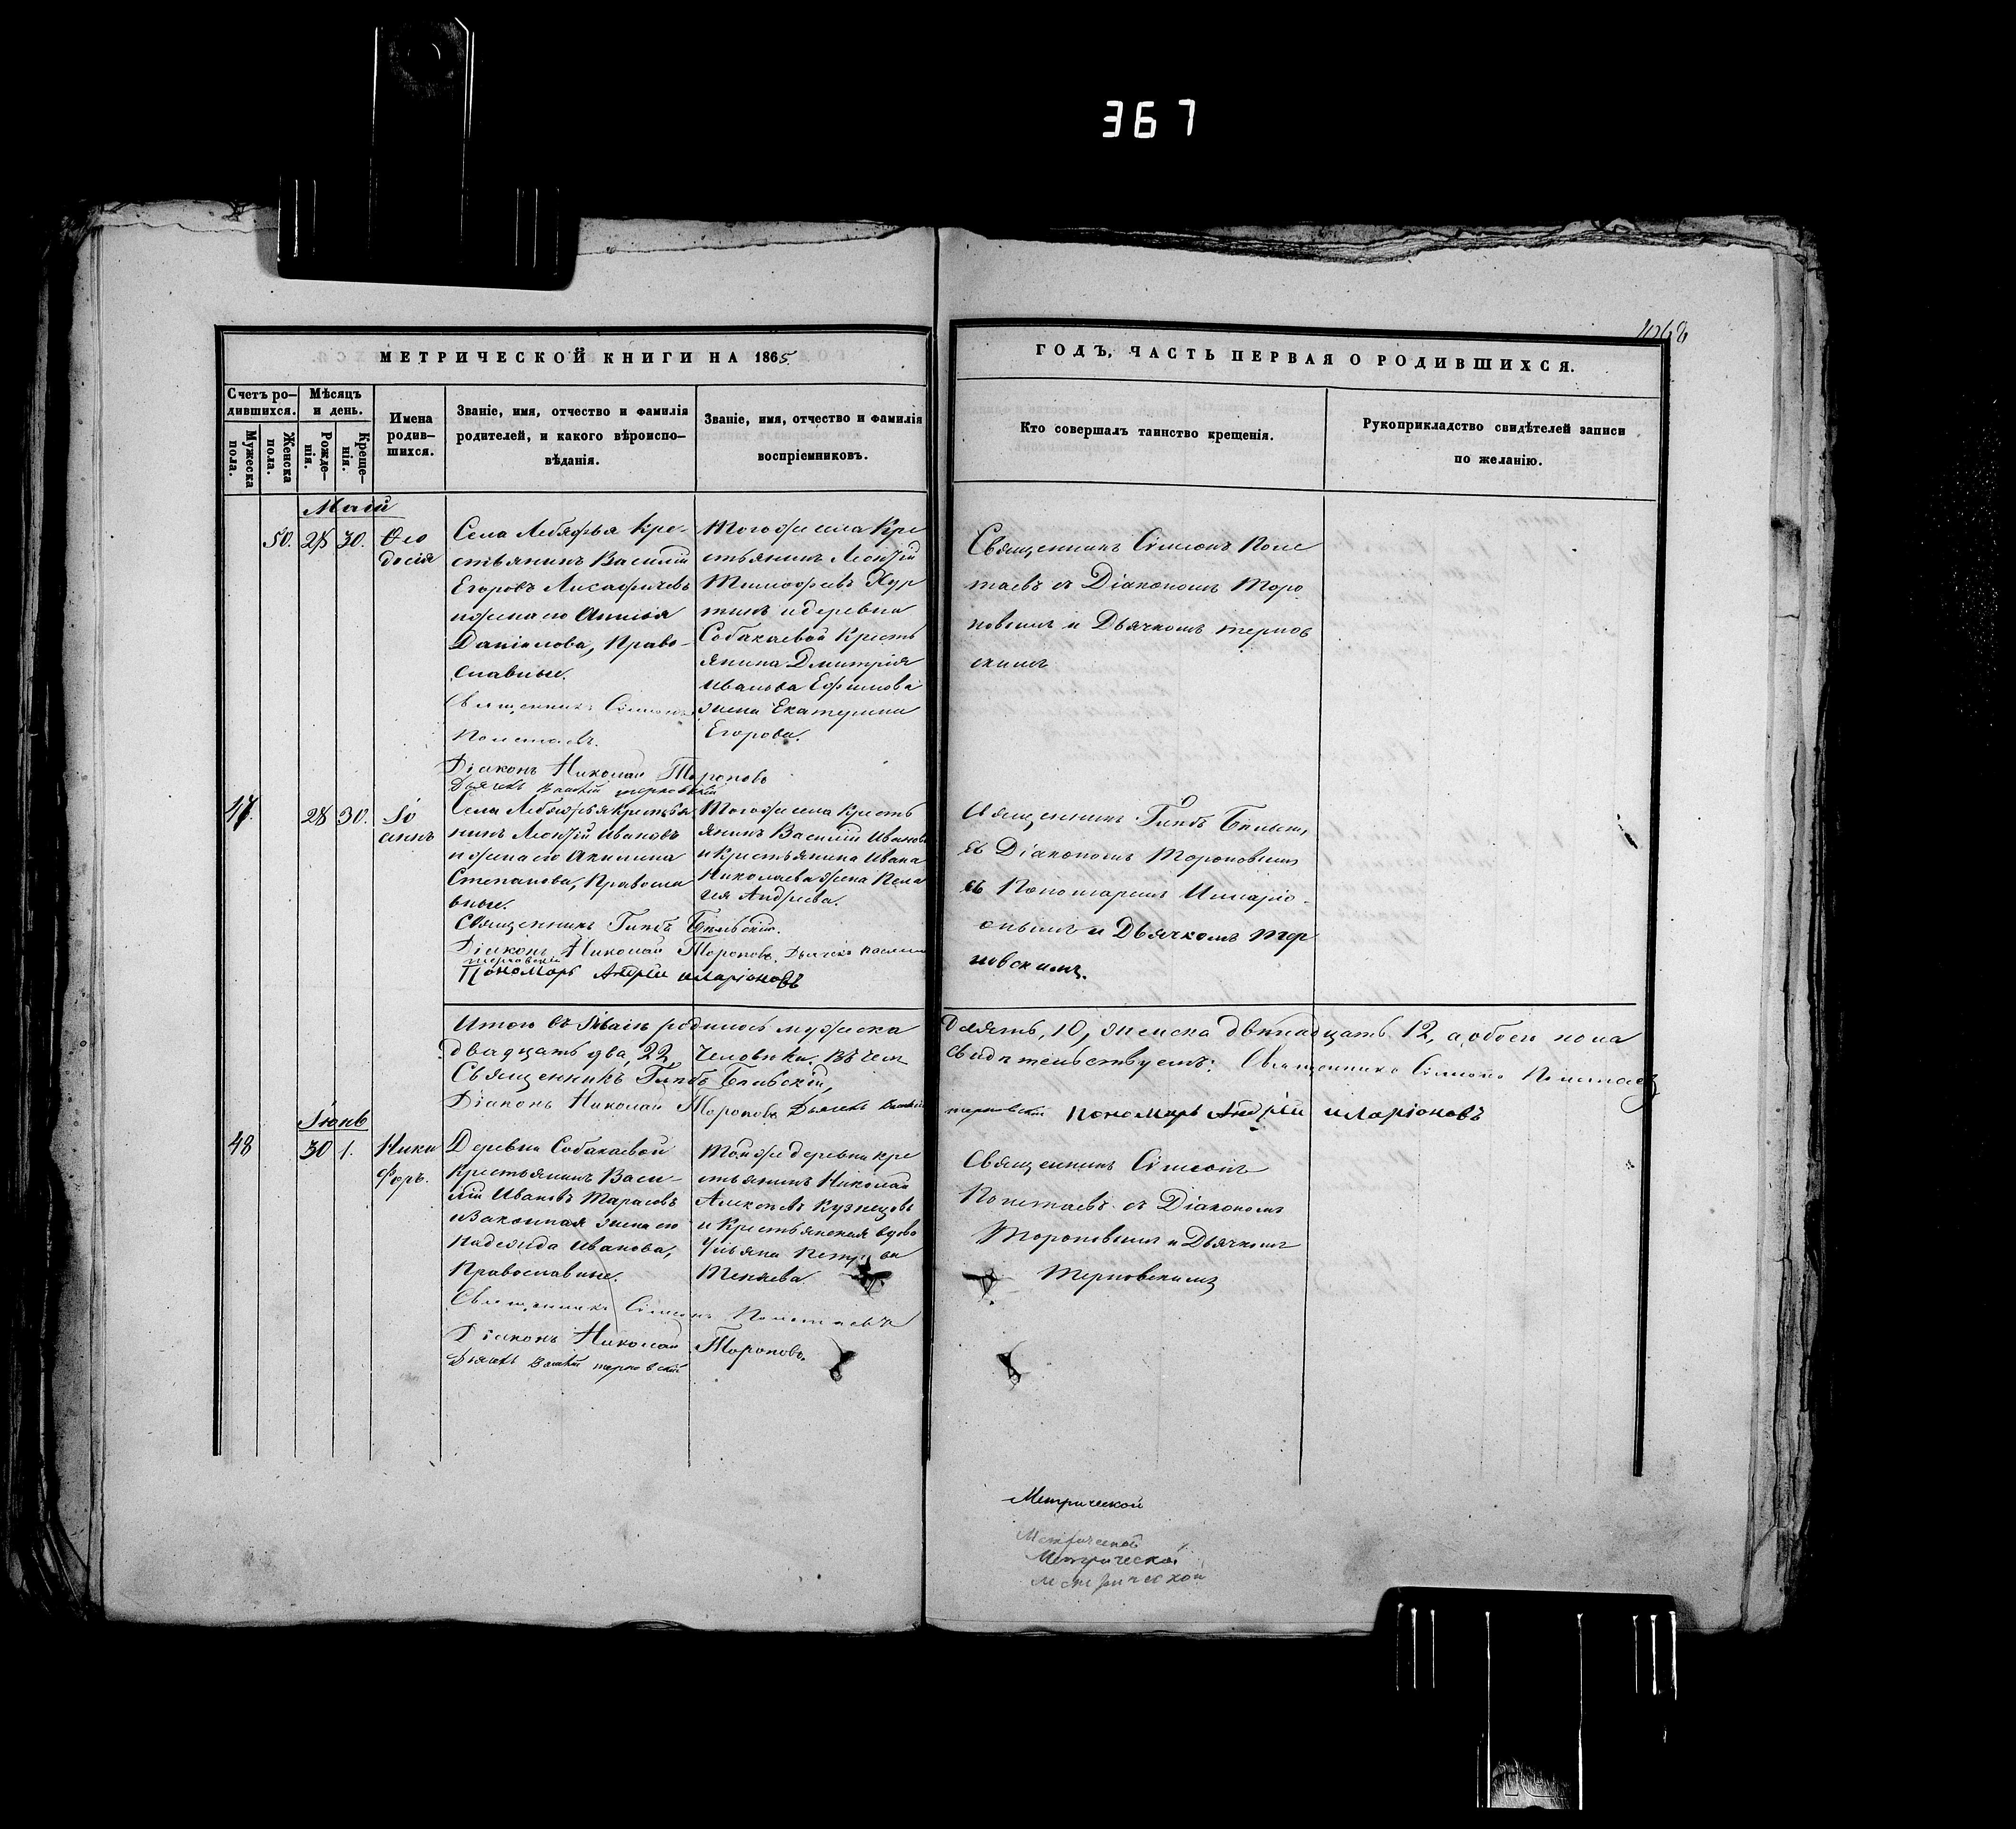 367
1068
МЕТРИЧЕСКОЙ КНИГИ НА 1865
ГОДЪ, ЧАСТЬ ПЕРВАЯ О РОДИВШИХСЯ.
Счетъ ро-
дившихся.
Мужеска
пола.
Женска
пола.
Мѣсяцъ
и день.
Рожде-
нія.
Креще-
нія.
Имена
родив-
шихся.
Званіе, имя, отчество и фамилія
родителей, и какого вѣроиспо-
вѣданія.
Званіе, имя, отчество и фамилія
воспріемниковъ.
Кто совершалъ таинство крещенія.
Рукоприкладство свидѣтелей записи
по желанію.
Май
50. 28 30. Ѳео
досія
Села Лебяжья Кре-
стьянинъ Василій
Егоровъ
и жена его
Даніилова, Право-
славные.
Священникъ Сімеонъ
Діаконъ Николай Тороповъ
Дьячекъ Василій Терновскій
Тогоже села Кре
стьянинъ Леонтій
Тимофѣевъ
и деревни
Собакаевой Кресть
янина Дмитрія
Иванова Ефимова
жена Екатерина
Егорова.
Священникъ Сімеонъ Поле
таевъ съ Діакономъ Торо
повымъ и Дьячкомъ Тернов
скимъ
47. 28 30. Іо
аннъ
Села Лебяжья крестья
нинъ Леонтій Ивановъ
и жена его Акилина
Степанова, Правосла
вные.
Священникъ Глѣбъ Бѣльскій.
Діаконъ Николай Тороповъ. Дьячекъ Василій
Терновскій
Пономарь Андрей Иларіоновъ
Тогоже села Кресть
янинъ Василій Ивановъ
и Крестьянина Ивана
Николаева жена Пела
гея Андреева.
Священникъ Глѣбъ Бѣльскій,
съ Діакономъ Тороповымъ
съ Пономаремъ Иларіо-
новымъ и Дьячкомъ Тер
новскимъ.
Итого въ Маѣ родилось мужеска десять, 10, женска двѣнадцать 12, а обоего пола
двадцать два, 22, человѣка. Въ чемъ свидѣтельствуемъ: Священникъ Сімеонъ Полетаевъ
Священникъ Глѣбъ Бѣльскій,
Діаконъ Николай Тороповъ Дьячекъ Василій Терновскій Пономарь Андрей Иларіоновъ
Іюнь
48 30 1. Ники
форъ.
Деревни Собакаевой
Крестьянинъ Васи-
лій Ивановъ Тарасовъ
и законная жена его
Надежда Иванова,
Православные.
Священникъ Сімеонъ Полетаевъ
Діаконъ Николай Тороповъ.
Дьячекъ Василій Терновскій
Тойже деревни кре
стьянинъ Николай
Алексѣевъ Кузнецовъ
и Крестьянская вдова
Ульяна Петрова
Теняева
Священникъ Сімеонъ
Полетаевъ съ Діакономъ
Тороповымъ и Дьячкомъ
Терновскимъ
Метрической
Метрической
Метрической
Метрической